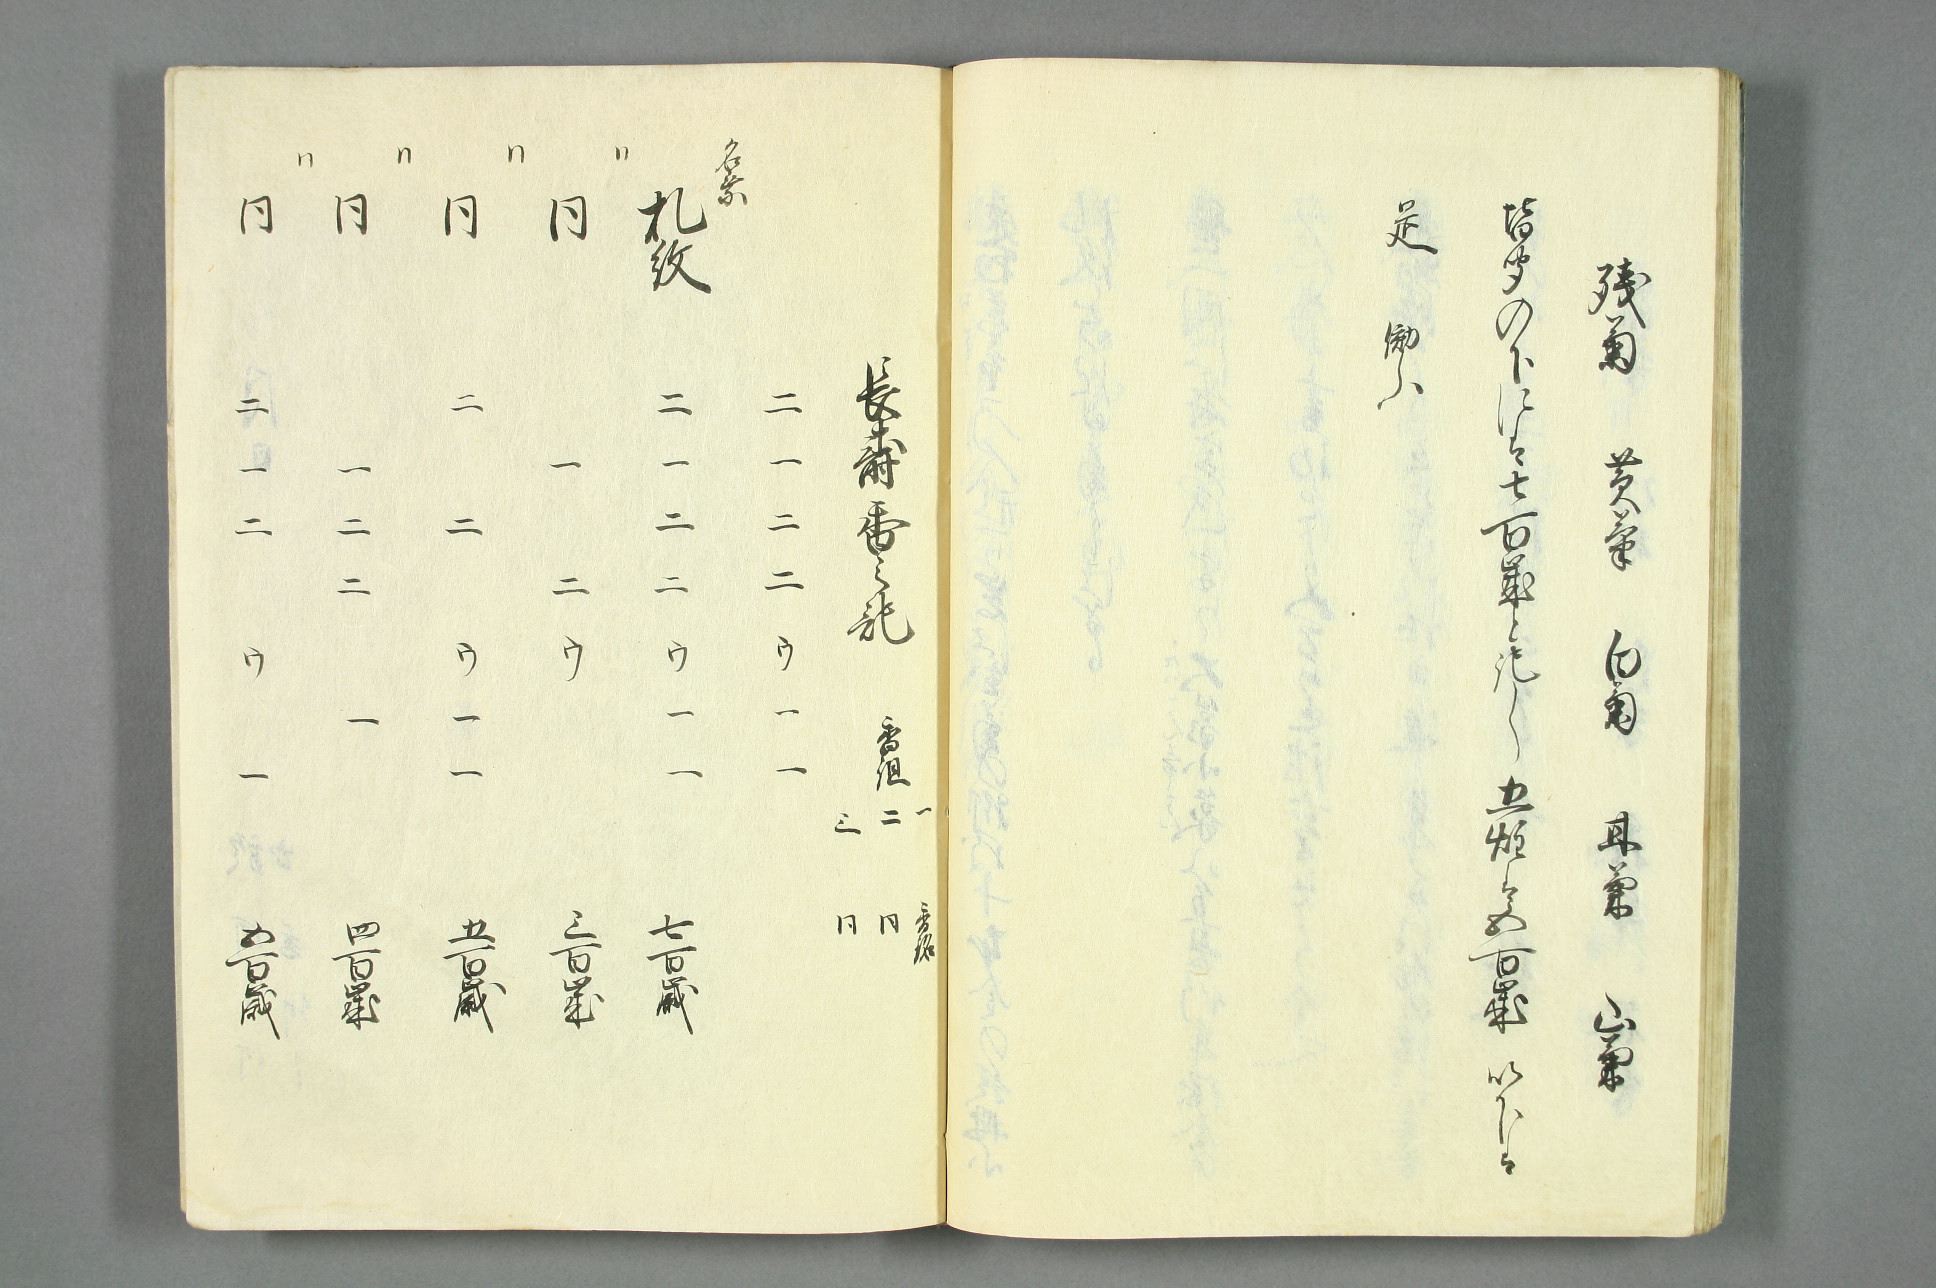 残菊 黄菊 白菊 耳菊 山菊
皆聞の下には七百歳と記し 五炷は五百歳 以下は
是 働ふ
長寿香之記
香組 一 二 三
香銘 同 同
二 一 二 二 ウ 一 一
名乗
札紋 二 一 二 二 ウ 一 一 七百歳
〃 同 一 二 ウ 三百歳
〃 同 二 二 ウ 一 一 五百歳
〃 同 一 二 二 一 四百歳
〃 同 二 一 二 ウ 一 五百歳